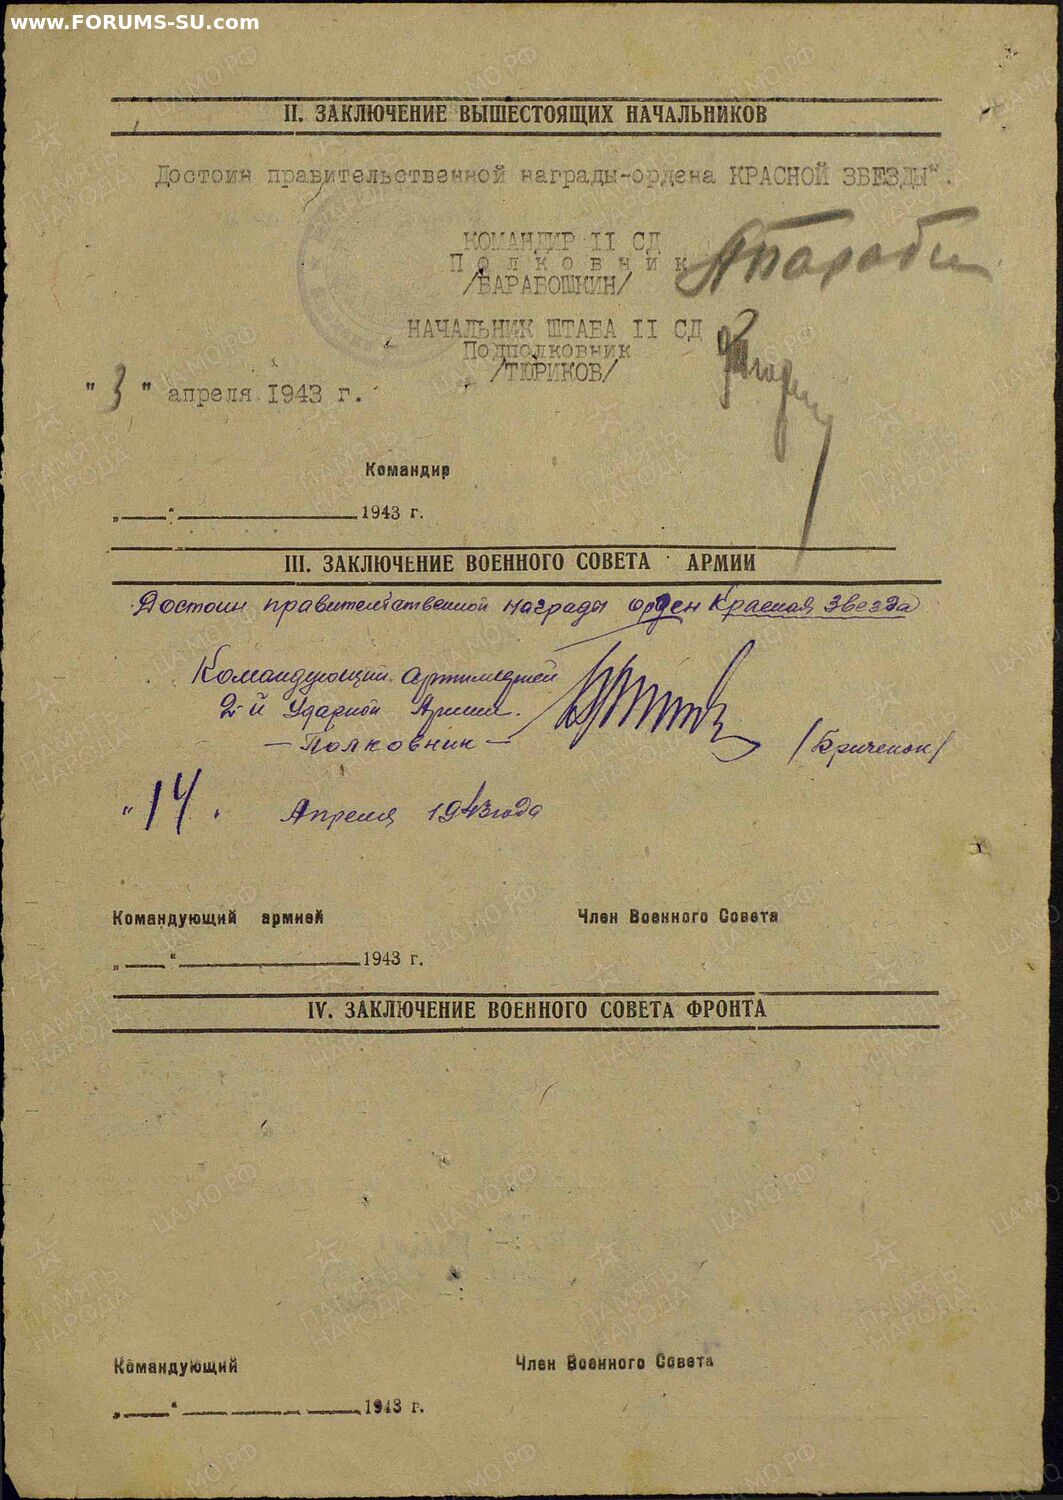 www.FORUMS-SU.com
II. ЗАКЛЮЧЕНИЕ ВЫШЕСТОЯЩИХ НАЧАЛЬНИКОВ
Достоин правительственной награды-ордена КРАСНОЙ ЗВЕЗДЫ".
КОМАНДИР II СД
Полковник
/БАРАБОШКИН/
НАЧАЛЬНИК ШТАБА II СД
Подполковник
/ТЮРИКОВ/
"3" апреля 1943 г.
Командир
„ “ 1943 г.
III. ЗАКЛЮЧЕНИЕ ВОЕННОГО СОВЕТА АРМИИ
Достоин правительственной награды орден Красная Звезда
Командующий артиллерией
2-й Ударной Армии.
- Полковник -
/Кричемон/
"14" Апреля 1943 года
Командующий армией Член Военного Совета
„ “ 1943 г.
IV. ЗАКЛЮЧЕНИЕ ВОЕННОГО СОВЕТА ФРОНТА
Командующий Член Военного Совета
„ “ 1943 г.
ЦА МО РФ
ПАМЯТЬ
НАРОДА